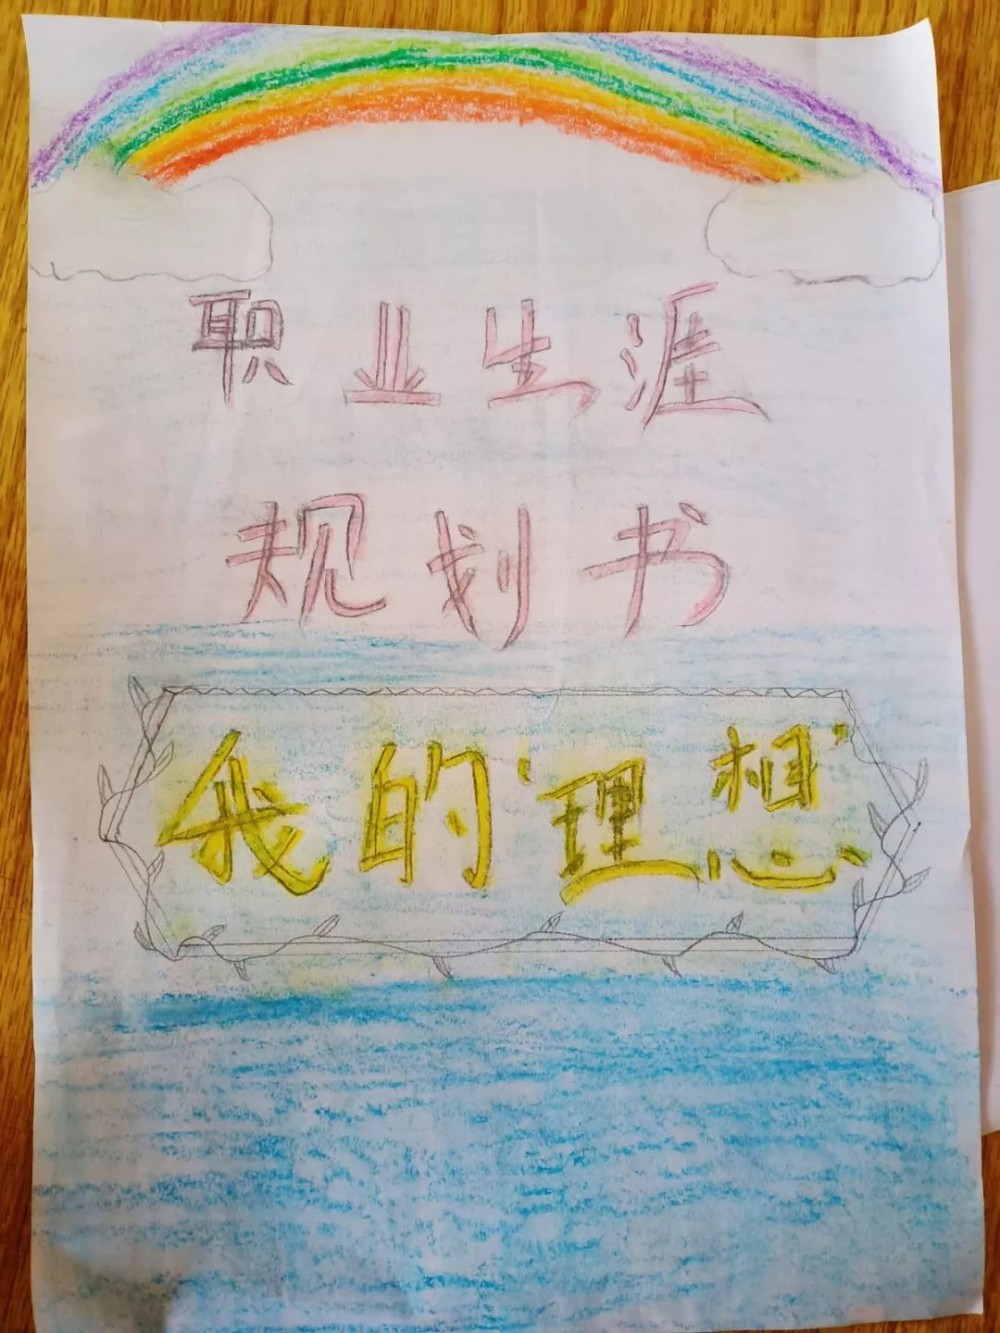 职业生涯
规划书
我的“理想”